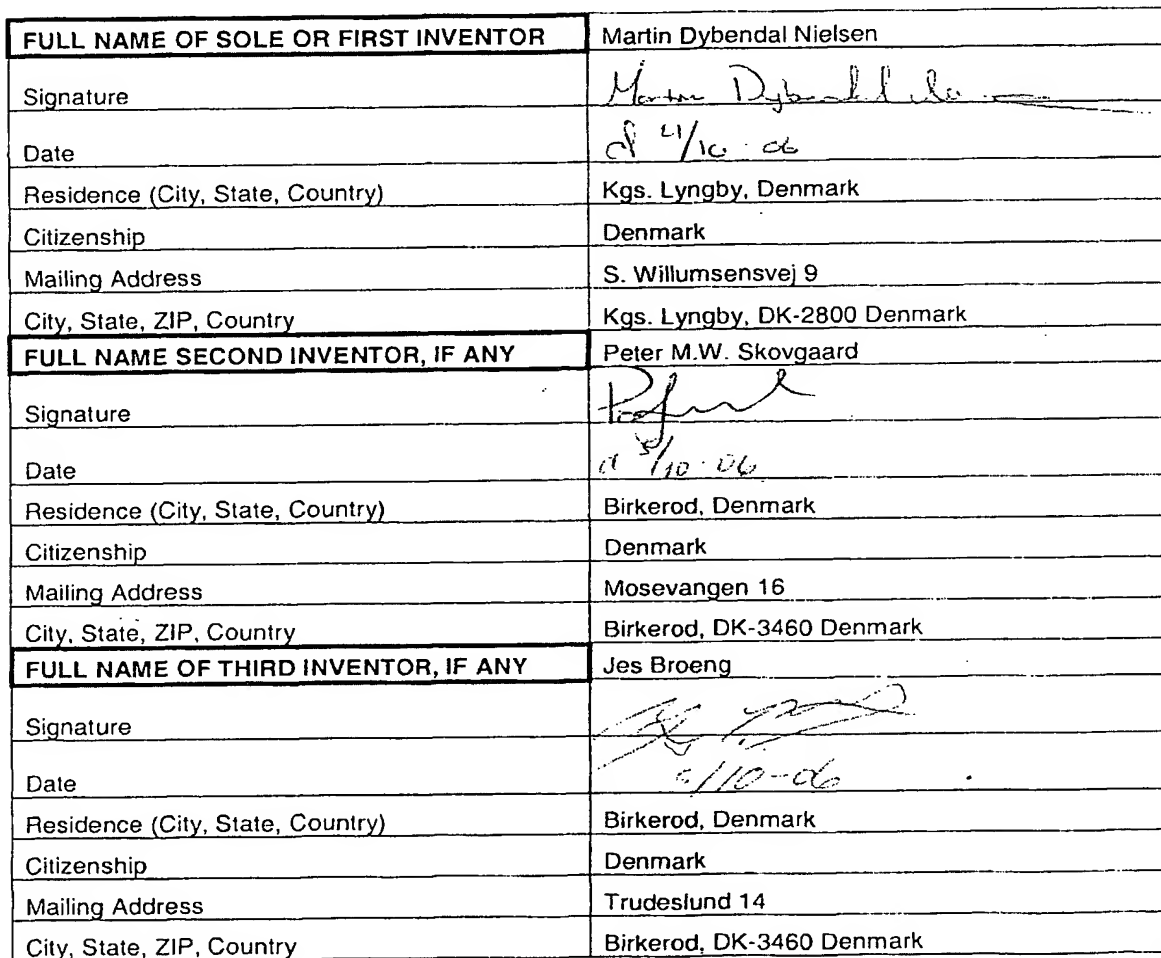 FULL NAME OF SOLE OR FIRST INVENTOR Martin Dybendal Nielsen
Signature Martin Dybendal
Date 4/10-06
Residence (City, State, Country) Kgs. Lyngby, Denmark
Citizenship Denmark
Mailing Address S. Willumsensvej 9
City, State, ZIP, Country Kgs. Lyngby, DK-2800 Denmark
FULL NAME SECOND INVENTOR, IF ANY Peter M.W. Skovgaard
Signature
Date /10-06
Residence (City, State, Country) Birkerod, Denmark
Citizenship Denmark
Mailing Address Mosevangen 16
City, State, ZIP, Country Birkerod, DK-3460 Denmark
FULL NAME OF THIRD INVENTOR, IF ANY Jes Broeng
Signature
Date /10-06
Residence (City, State, Country) Birkerod, Denmark
Citizenship Denmark
Mailing Address Trudeslund 14
City, State, ZIP, Country Birkerod, DK-3460 Denmark